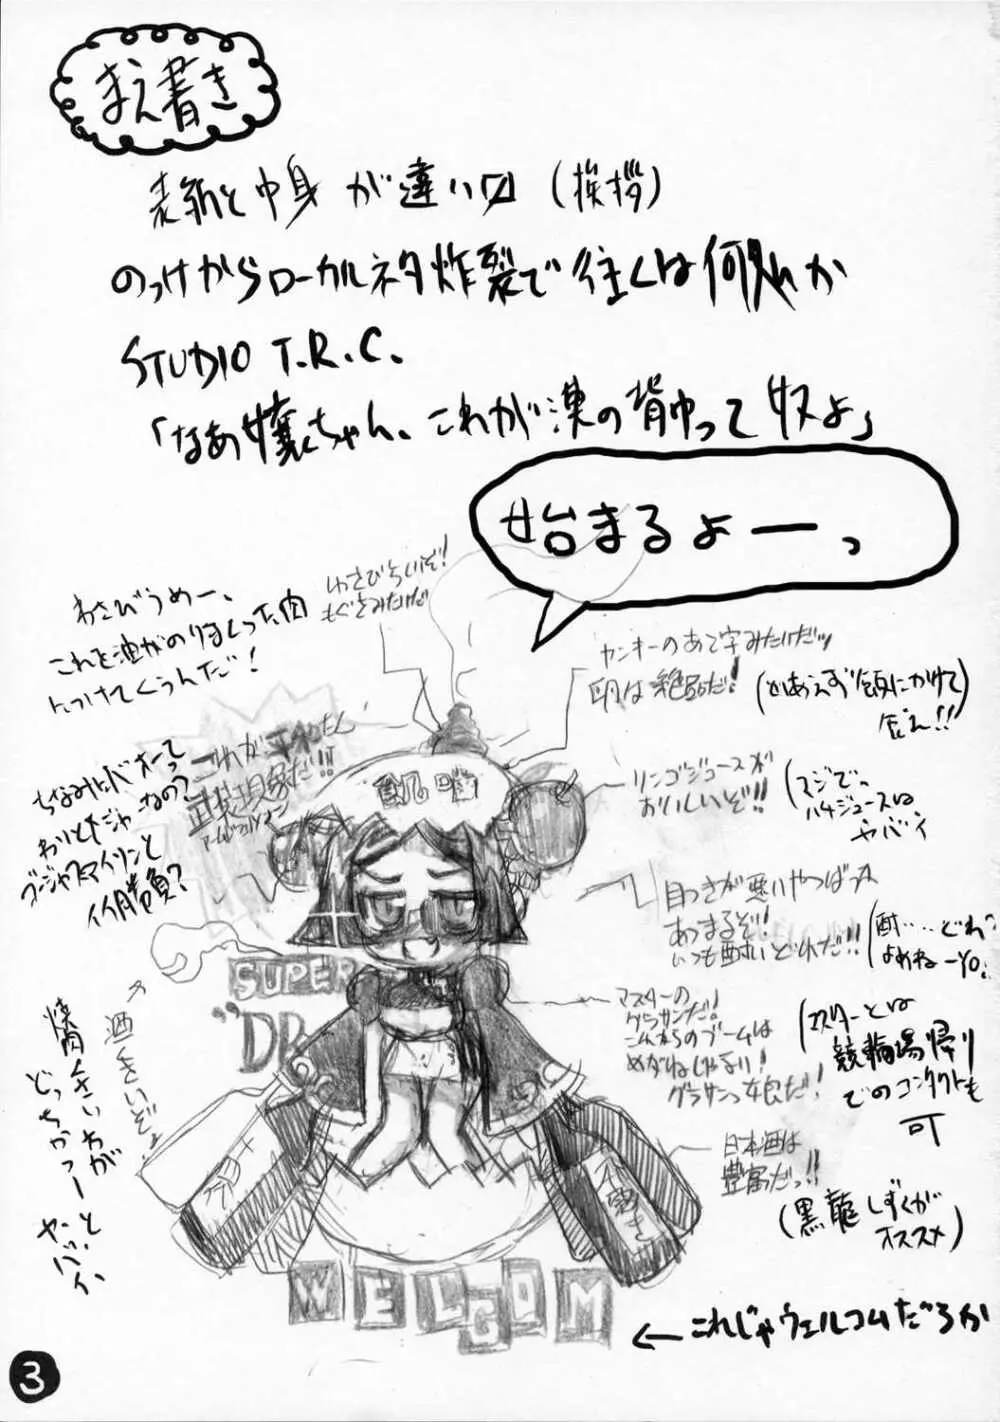 まえ書き
表紙と中身が違い〼（挨拶）
のっけからローカルネタ炸裂で往くは何処か
STUDIO T.R.C.
「なあ嬢ちゃん、これが漢の背中って奴よ」
始まるよーっ
わさびらいいぞ！
もぐさみたいだ
わさびうめー、
これを油がのりまくった肉
につけてくうんだ！
ヤンキーのあて字みたいだッ
卵は絶品だ！
(とりあえず飯にかけて
食え!!
これが平和たん
武装現象だ!!
リンゴジュースが
おいしいぞ!!
(マジで。
ハチジュースは
ヤバイ
目つきが悪いやつばっか
あつまるぞ！
いつも酔いどれだ!!
(酎……どれ?
よめねーYO.
SUPER
"DR
マスターの
グラサンだ！
これからのブームは
めがねじゃない！
グラサンっ娘だ！
(マスターとは
競輪場帰り
でのコンタクトも
可
酒くさいぞ
焼肉くさい方が
どっちかっつーと
ヤバイ
日本酒は
豊富だっ!!
(黒龍しずくが
オススメ)
WELCOM
←これじゃウェルコムだろが
3